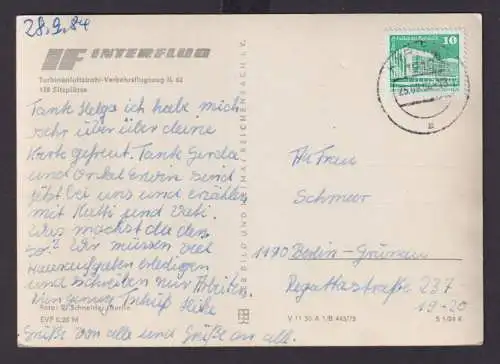 28.9.84
IF INTERFLUG
Turbinenluftstrahl-Verkehrsflugzeug IL 62
Sitzplätze
Tante Helga ich habe mich
sehr über über deine
Karte gefreut. Tante Gerda
und Onkel Erwin sind
jetzt bei uns und erzählen
mit Mutti und Vati.
Was machst du den
so? Wir müssen viel
Hausaufgaben erledigen
und schreiben nur Arbeiten.
Nun genug Tschüß Heike
Grüße von alle und Grüße an alle.
EVP 0,20 M
BILD UND HEIMAT REICHENBACH I. V.
10
Frau
Schmeer
1190 Berlin-Grünau
Regattastraße 237
19-20
V 11 50 A 1/B 443/75